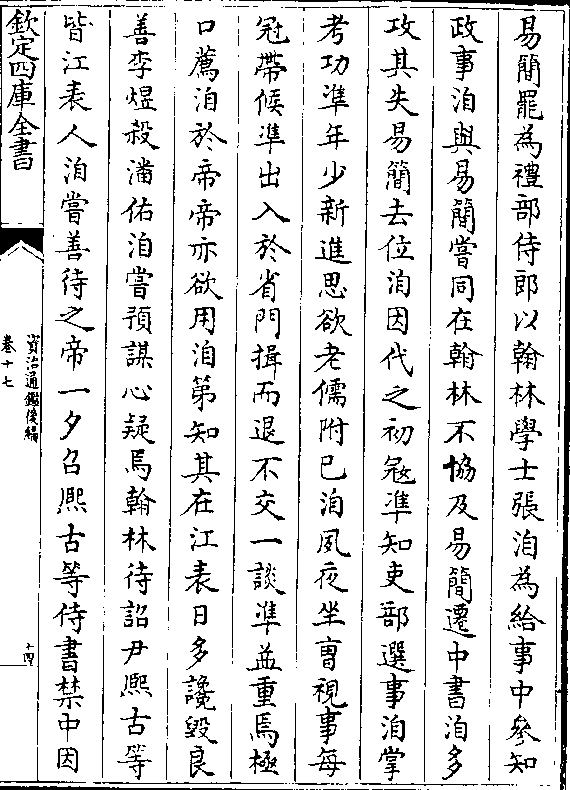 易簡罷為禮部侍郎以翰林學士張洎為給事中參知
政事洎與易簡嘗同在翰林不協及易簡遷中書洎多
攻其失易簡去位洎因代之初㓂準知吏部選事洎掌
考功準年少新進思欲老儒附已洎夙夜坐曹視事每
冠帶候準出入於省門揖而退不交一談準益重焉極
口薦洎於帝帝亦欲用洎第知其在江表日多讒毀良
善李煜殺潘佑洎嘗預謀心疑焉翰林待詔尹熈古等
皆江表人洎嘗善待之帝一夕召熈古等侍書禁中因
欽定四庫全書
資治通鑑後編
卷十七
十四